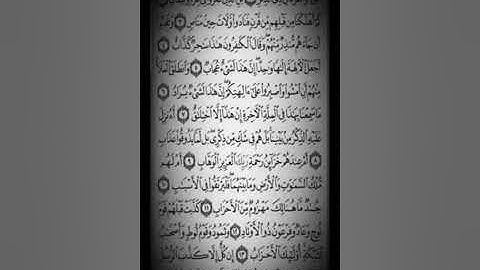 أَهْلَكْنَا مِن قَبْلِهِم مِّن قَرْنٍ فَنَادَوا۟ وَّلَاتَ حِينَ مَنَاصٍ ٣ وَعَجِبُوٓا۟
أَن جَآءَهُم مُّنذِرٌ مِّنْهُمْ وَقَالَ ٱلْكَٰفِرُونَ هَٰذَا سَٰحِرٌ كَذَّابٌ ٤
أَجَعَلَ ٱلْءَالِهَةَ إِلَٰهًا وَٰحِدًا إِنَّ هَٰذَا لَشَىْءٌ عُجَابٌ ٥ وَٱنطَلَقَ ٱلْمَلَأُ
مِنْهُمْ أَنِ ٱمْشُوا۟ وَٱصْبِرُوا۟ عَلَىٰٓ ءَالِهَتِكُمْ إِنَّ هَٰذَا لَشَىْءٌ يُرَادُ ٦
مَا سَمِعْنَا بِهَٰذَا فِى ٱلْمِلَّةِ ٱلْءَاخِرَةِ إِنْ هَٰذَآ إِلَّا ٱخْتِلَٰقٌ ٧ أَءُنزِلَ
عَلَيْهِ ٱلذِّكْرُ مِنۢ بَيْنِنَا بَلْ هُمْ فِى شَكٍّ مِّن ذِكْرِى بَل لَّمَّا يَذُوقُوا۟ عَذَابِ
٨ أَمْ عِندَهُمْ خَزَآئِنُ رَحْمَةِ رَبِّكَ ٱلْعَزِيزِ ٱلْوَهَّابِ ٩ أَمْ لَهُم
مُّلْكُ ٱلسَّمَٰوَٰتِ وَٱلْأَرْضِ وَمَا بَيْنَهُمَا فَلْيَرْتَقُوا۟ فِى ٱلْأَسْبَٰبِ
١٠ جُندٌ مَّا هُنَالِكَ مَهْزُومٌ مِّنَ ٱلْأَحْزَابِ ١١ كَذَّبَتْ قَبْلَهُمْ قَوْمُ
نُوحٍ وَعَادٌ وَفِرْعَوْنُ ذُو ٱلْأَوْتَادِ ١٢ وَثَمُودُ وَقَوْمُ لُوطٍ وَأَصْحَٰبُ
لْـَٔيْكَةِ أُو۟لَٰٓئِكَ ٱلْأَحْزَابُ ١٣ إِن كُلٌّ إِلَّا كَذَّبَ ٱلرُّسُلَ